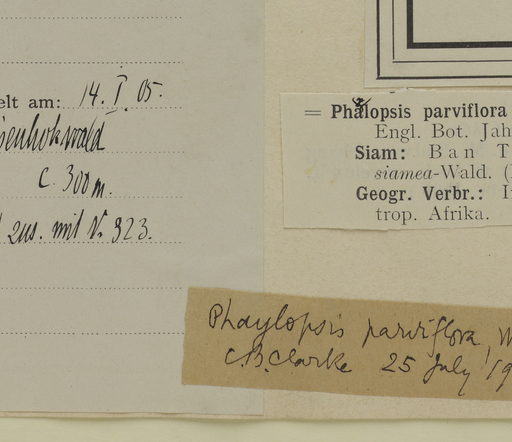 elt am: 14. I. 05.
c. 300 m.
zus. mit N. 323.
= Phalopsis parviflora
Engl. Bot. Jah
Siam: Ban T
siamea-Wald. (
Geogr. Verbr.: I
trop. Afrika.
Phaylopsis parviflora, W
C.B. Clarke 25 July 19